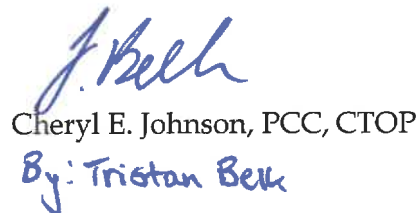 J. Belk
Cheryl E. Johnson, PCC, CTOP
By: Tristan Belk